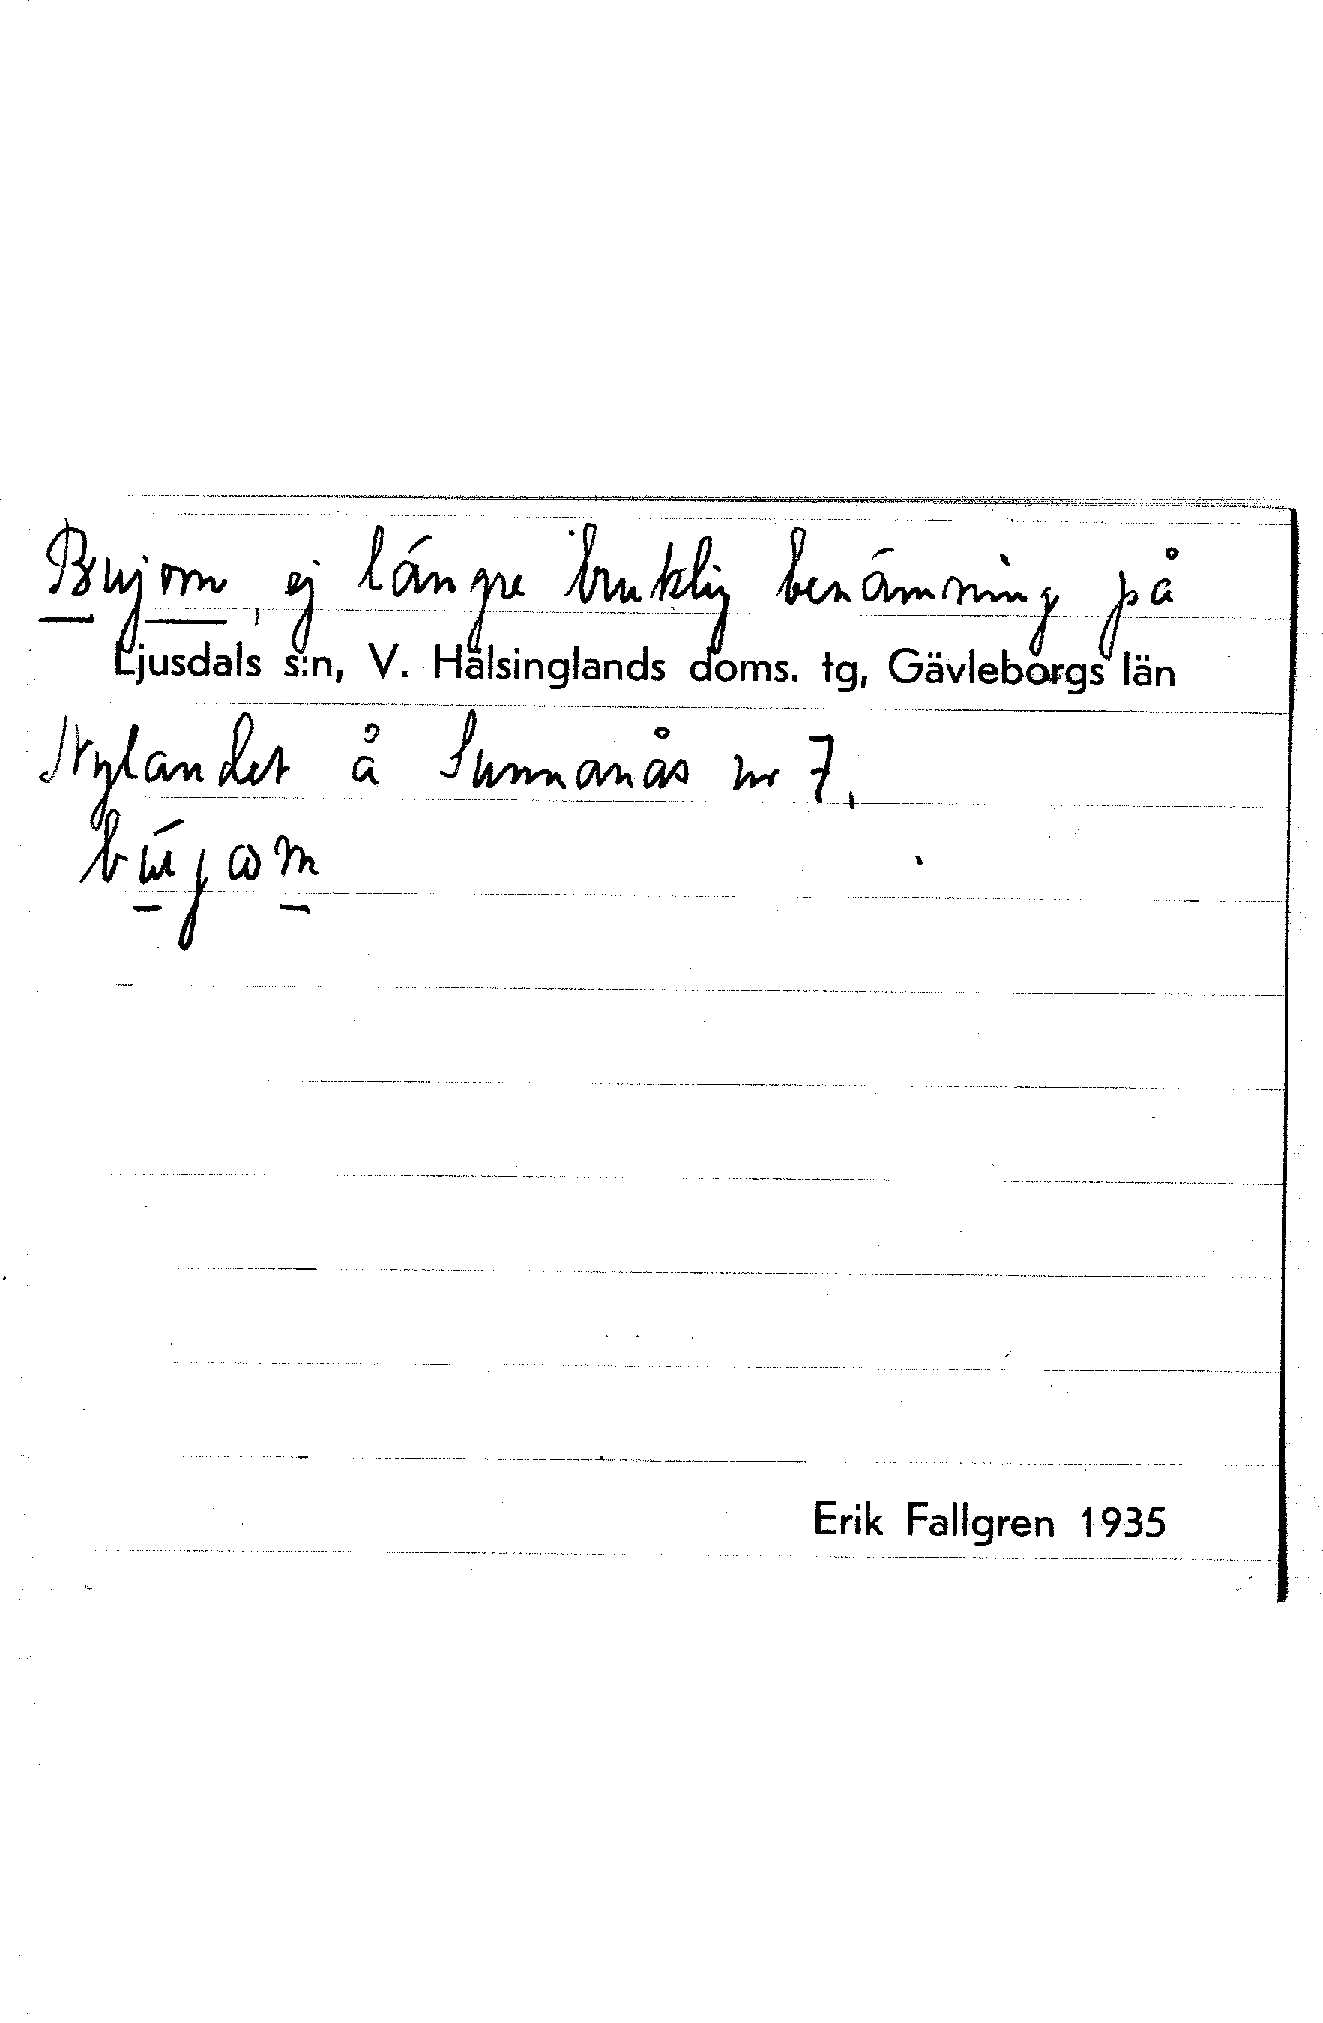 Bujom, ej längre bruklig benämning på
Ljusdals s:n, V. Hälsinglands doms. tg, Gävleborgs län
Nylandet å Sunnanås nr 7.
Erik Fallgren 1935